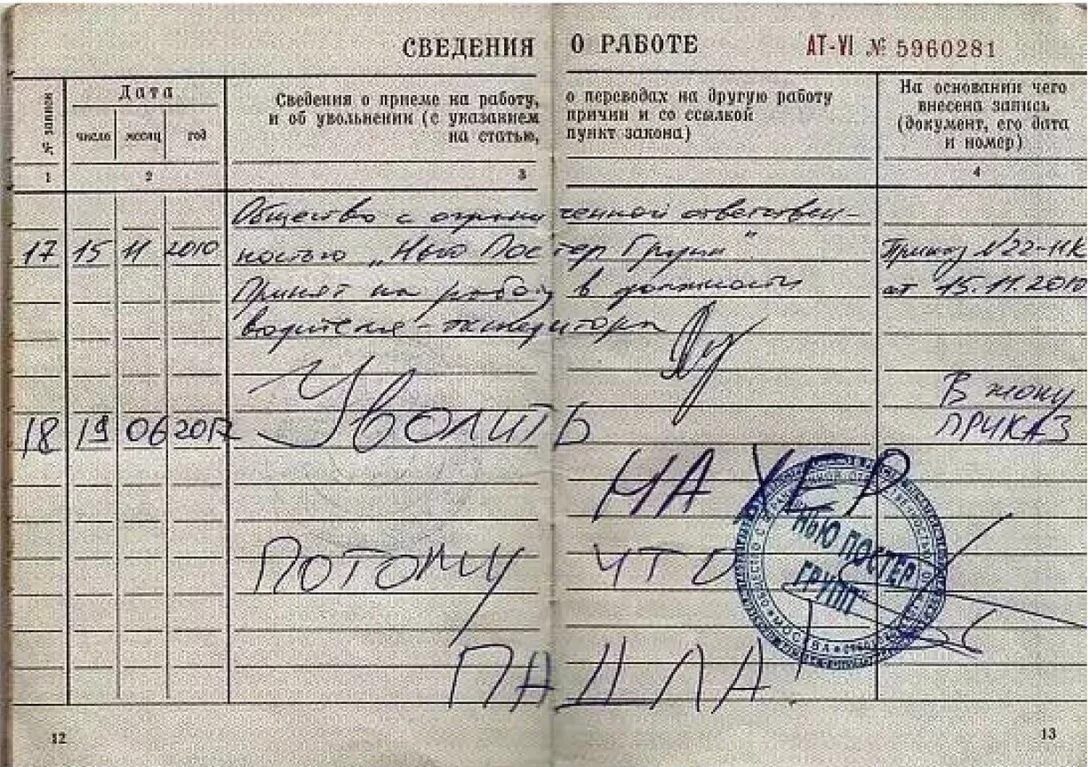 СВЕДЕНИЯ О РАБОТЕ АТ-VI № 5960281
№ записи
Дата
число месяц год
Сведения о приеме на работу, о переводах на другую работу
и об увольнении (с указанием причин и со ссылкой
на статью, пункт закона)
На основании чего
внесена запись
(документ, его дата
и номер)
1 2 3 4
Общество с ограниченной ответствен-
17 15 11 2010 ностью „Нью Постер Групп" Приказ №22-11К
Принят на работу в должности от 15.11.2010
водителя-экспедитора
В жопу
18 19 06 2012 Уволить ПРИКАЗ
НАХЕР
ПОТОМУ ЧТО
ПАДЛА.
НЬЮ ПОСТЕР
ГРУПП
МОСКВА
12 13